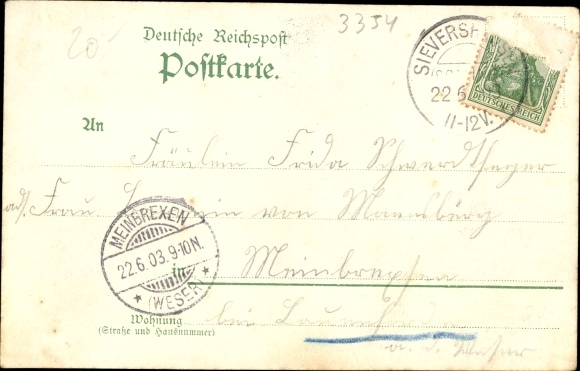 20
3354
Deutsche Reichspost
Postkarte.
SIEVERSH
22 6
11-12V.
DEUTSCHES REICH
An
Fräulein Frida Schwerdtfeger
adr. Frau von
MEINBREXEN
22.6.03.9-10N.
* (WESER) *
in Meinbrexen
bei Lauenförde
a. d. Weser
Wohnung
(Straße und Hausnummer)